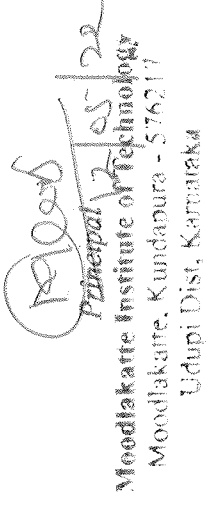 12/05/22
Principal
Moodlakatte Institute of Technology
Moodlakatte, Kundapura - 576217
Udupi Dist, Karnataka